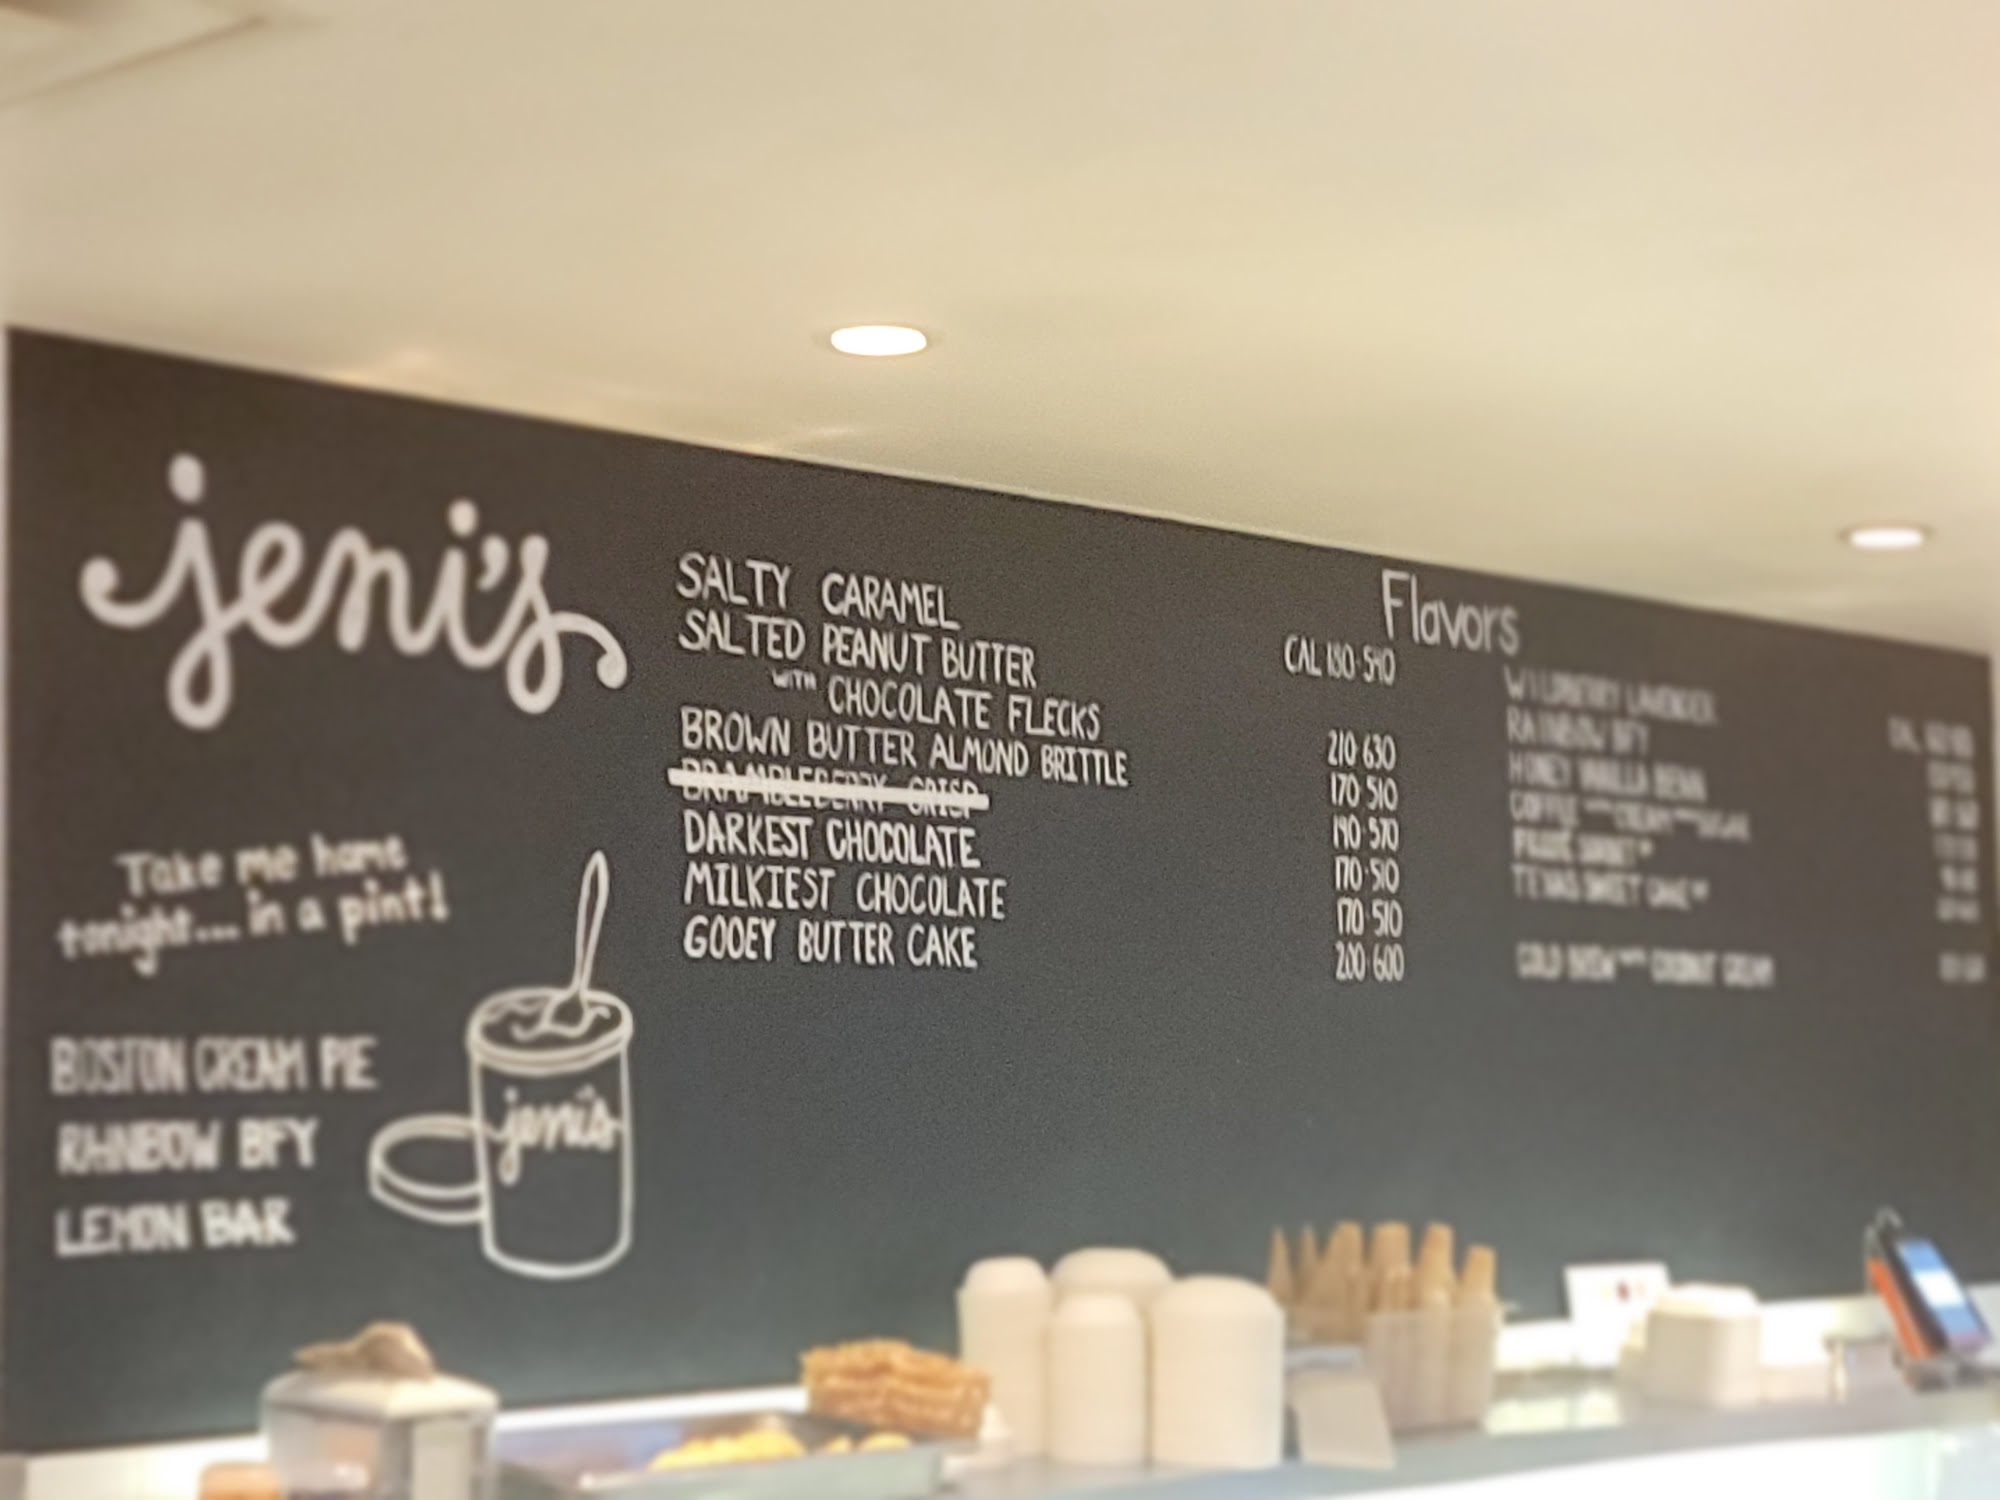 jeni's
Take me home
tonight... in a pint!
BOSTON CREAM PIE
RAINBOW BFY
LEMON BAR
jeni's
Flavors
SALTY CARAMEL CAL 180·540
SALTED PEANUT BUTTER
WITH CHOCOLATE FLECKS 210·630
BROWN BUTTER ALMOND BRITTLE 170·510
BRAMBLEBERRY CRISP 190·570
DARKEST CHOCOLATE 170·510
MILKIEST CHOCOLATE 170·510
GOOEY BUTTER CAKE 200·600
WILDBERRY LAVENDER
RAINBOW BFY
HONEY VANILLA BEAN
COFFEE WITH CREAM SUGAR
SORBET*
TEXAS SHEET CAKE*
COLD BREW WITH COCONUT CREAM